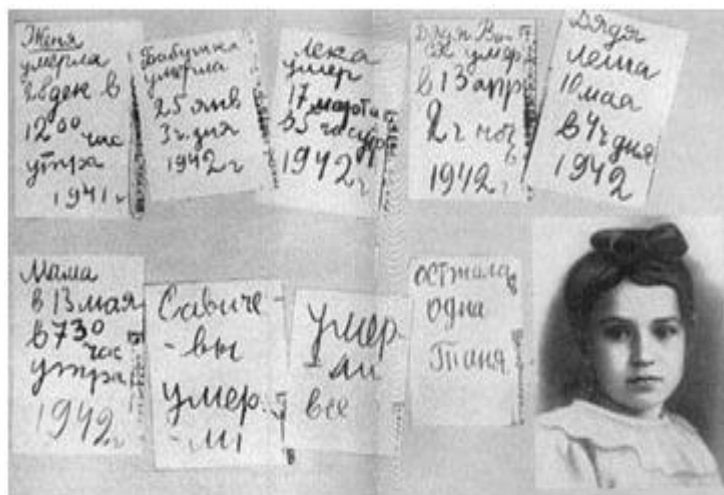 Женя
умерла
28 дек в
12 00 час
утра
1941 г
Бабушка
умерла
25 янв
3 ч. дня
1942 г
Лека
умер
17 марта
в 5 час утр
1942 г
Дядя Вася
умер
в 13 апр
2 ч ноч
1942 г
Дядя
Леша
10 мая
в 4 ч дня
1942
Мама
в 13 мая
в 7 30
час
утра
1942 г
Савиче-
-вы
умер.
-ли
умер-
-ли
все
осталась
одна
Таня